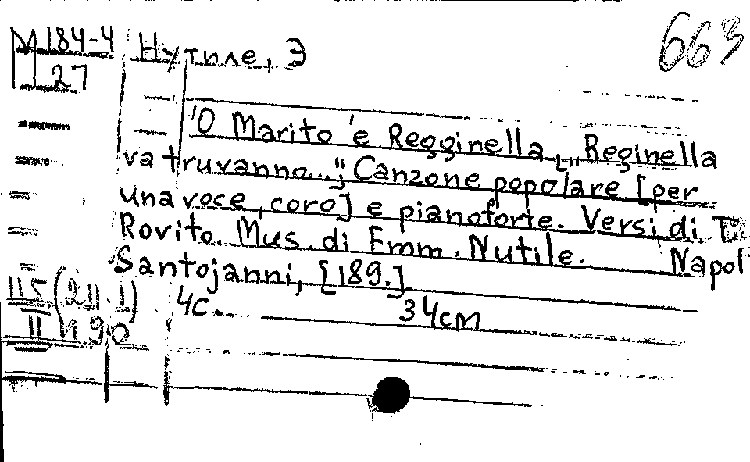 663
М 184-4
27
Нутиле, Э
'O Marito 'e Regginella [„Reginella
va truvanno..."; Canzone popolare [per
una voce, coro] e pianoforte. Versi di T.
Rovito. Mus. di Emm. Nutile. Napol
Santojanni, [189.]
4с. 34см
115 (211.1)
II н.90